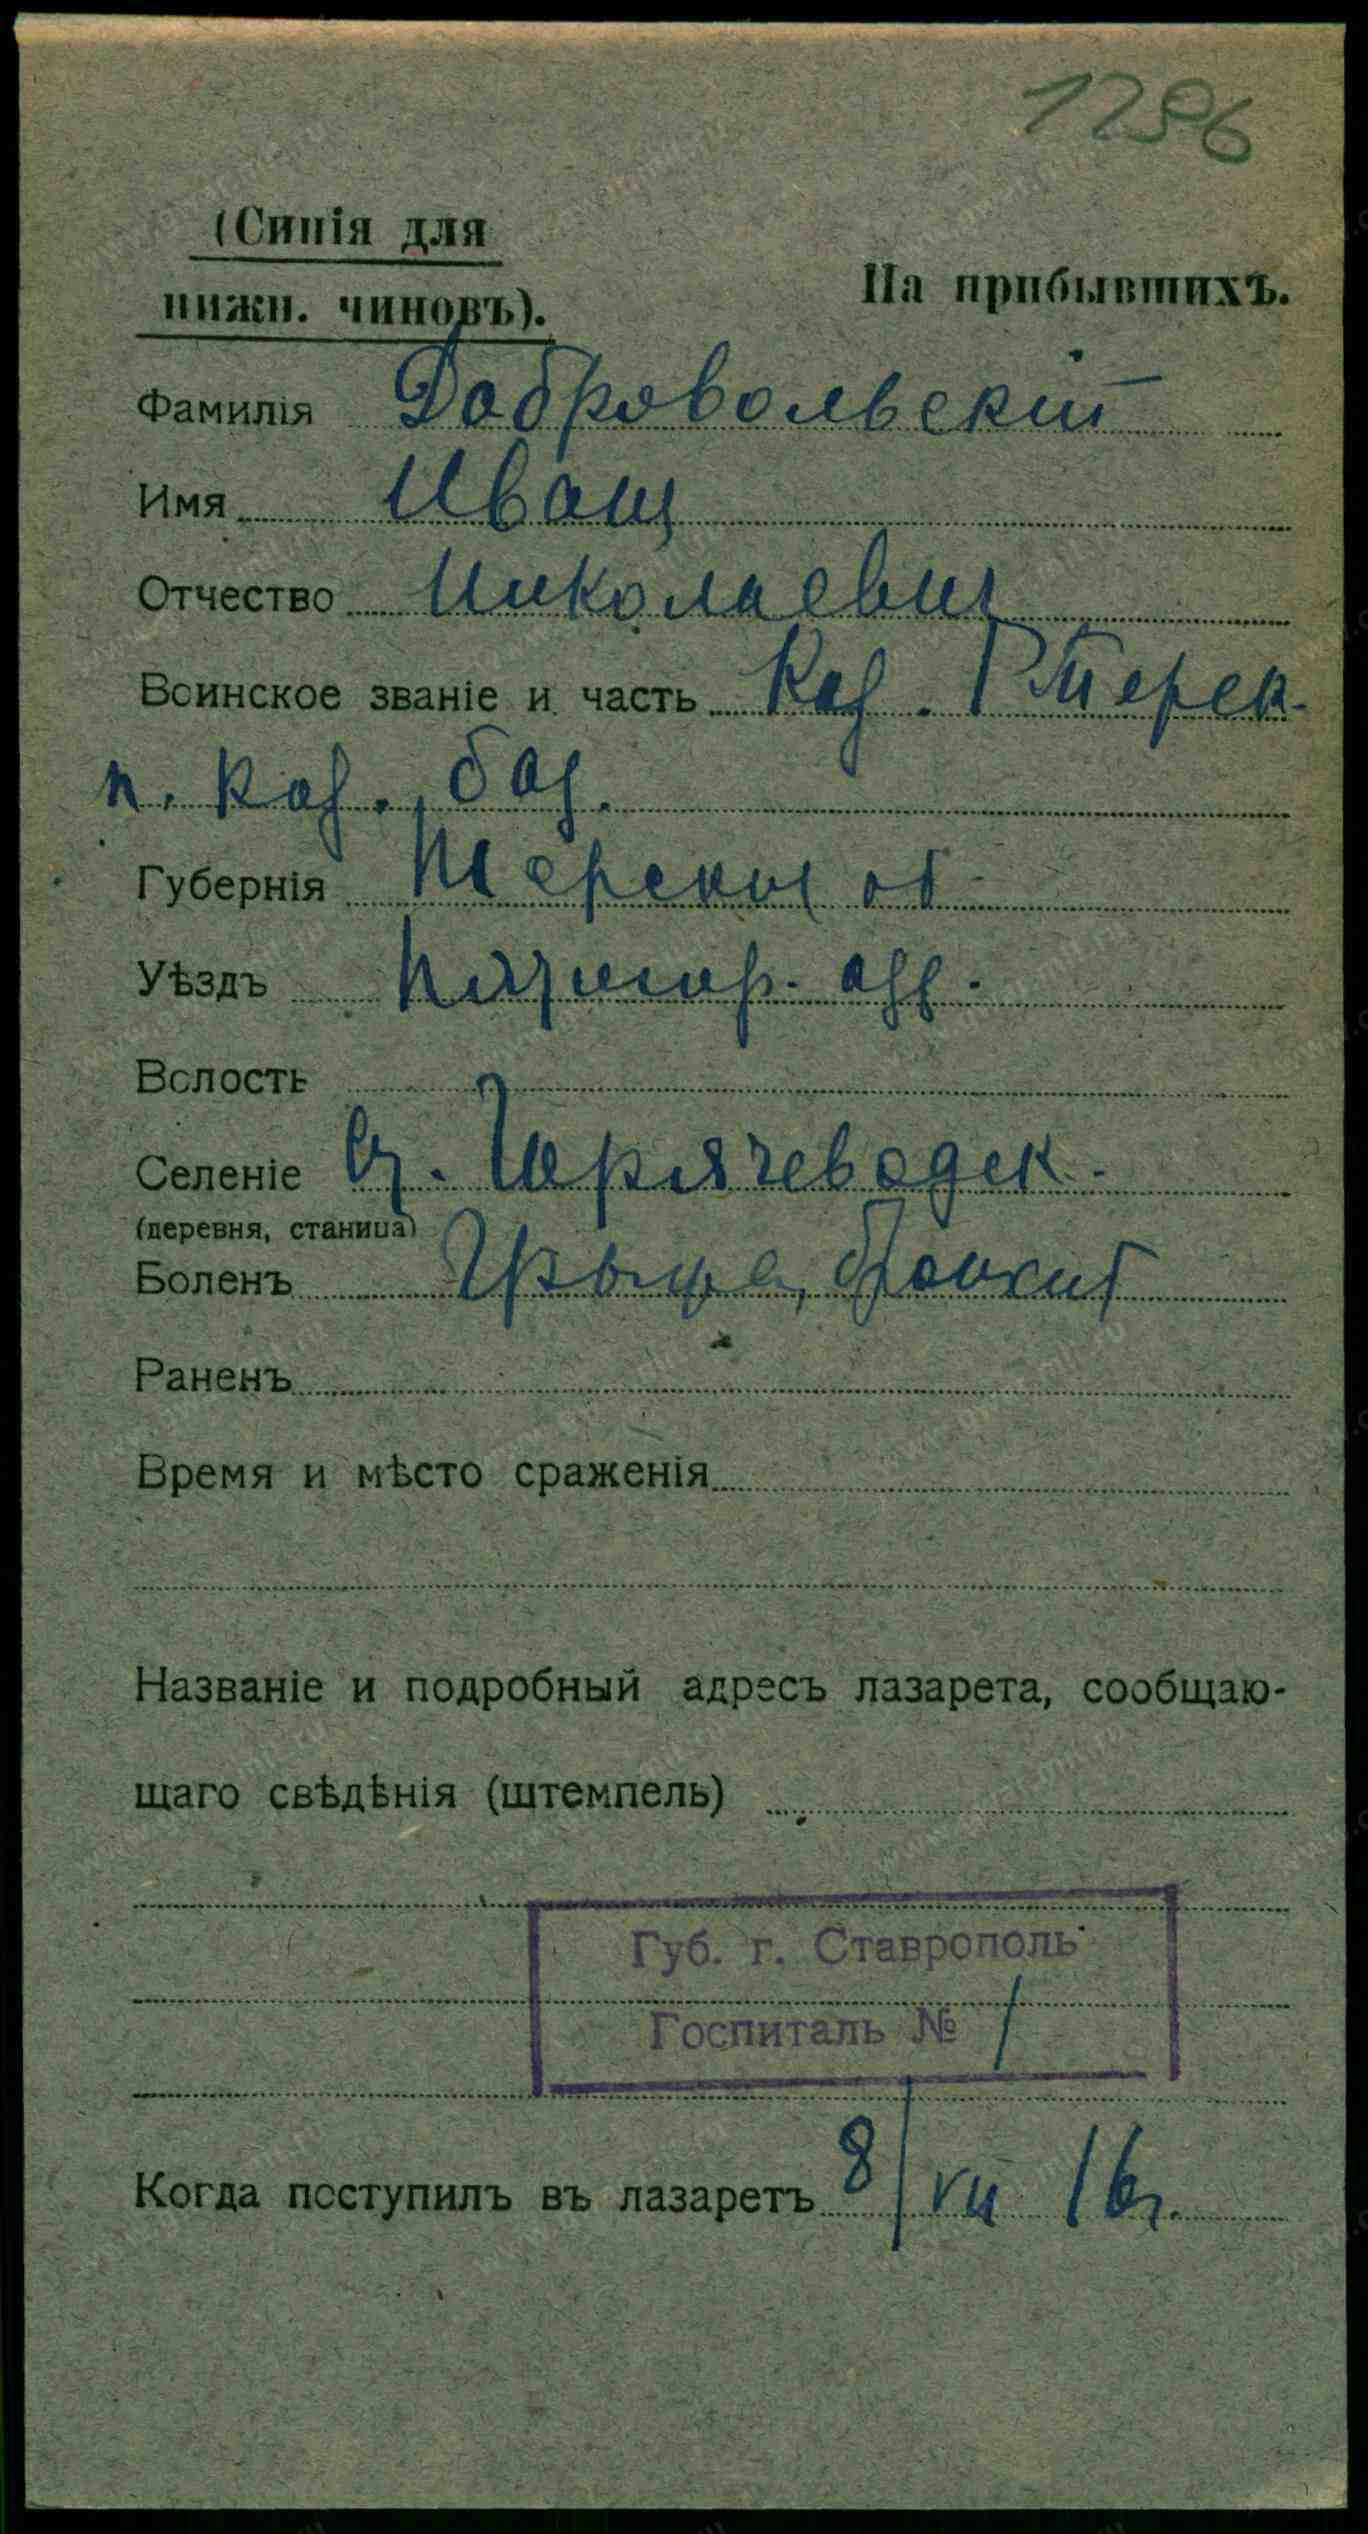 1296
(Синія для
нижн. чиновъ).
На прибывшихъ.
Фамилія Добровольскій
Имя Иванъ
Отчество Николаевич
Воинское званіе и часть Каз. Терек.
п. каз. бат.
Губернія Терской об.
Уѣздъ Пятигор. отд.
Волость
Селеніе ст. Горячеводск.
(деревня, станица)
Боленъ Грыжа, бронхит
Раненъ
Время и мѣсто сраженія
Названіе и подробный адресъ лазарета, сообщаю-
щаго свѣдѣнія (штемпель)
Губ. г. Ставрополь
Госпиталь № 1
Когда поступилъ въ лазаретъ 8/VII 16г.